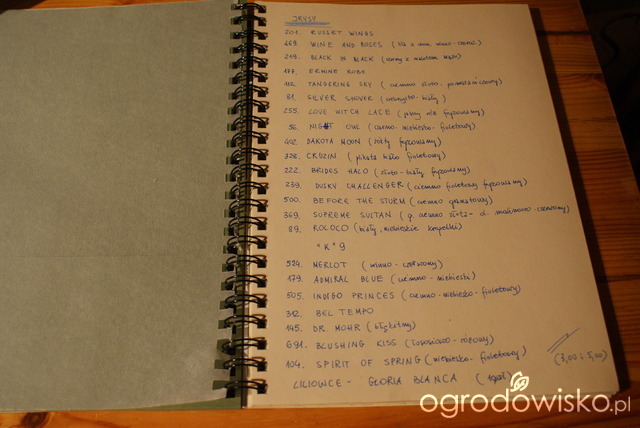 IRYSY
201. RUSSET WINGS
469. WINE AND ROSES
219. BLACK IS BLACK (czarny z
177. ERMINE ROBE
112. TANGERING SKY (ciemno złoto. pomarańczowy)
81. SILVER SHOWER (srebrzysto - biały)
255. LOVE WITCH LACE ( fryzowany)
56. NIGHT OWL (ciemno - niebiesko - fioletowy)
402. DAKOTA MOON (żółty fryzowany)
328. CROZIN (plikata biało fioletowy)
222. BRIDES HALO (złoto - biały fryzowany)
239. DUSKY CHALLENGER (ciemno fioletowy fryzowany)
500. BEFORE THE STURM (ciemno granatowy)
369. SUPREME SULTAN (g. ciemno złota - d. malinowo - czerwony)
89. ROCOCO (biały, niebieskie krepelki)
"K" 9
524. MERLOT (winno - czerwony)
179. ADMIRAL BLUE (ciemno - niebieski)
505. INDIGO PRINCES (ciemno - niebiesko - fioletowy)
312. BEL TEMPO
145. DR. MOHR (błękitny)
691. BLUSHING KISS (łososiowo - różowy)
104. SPIRIT OF SPRING (niebiesko - fioletowy) (3,00 i 5,00)
LILIOWCE - GLORIA BLANCA
ogrodowisko.pl